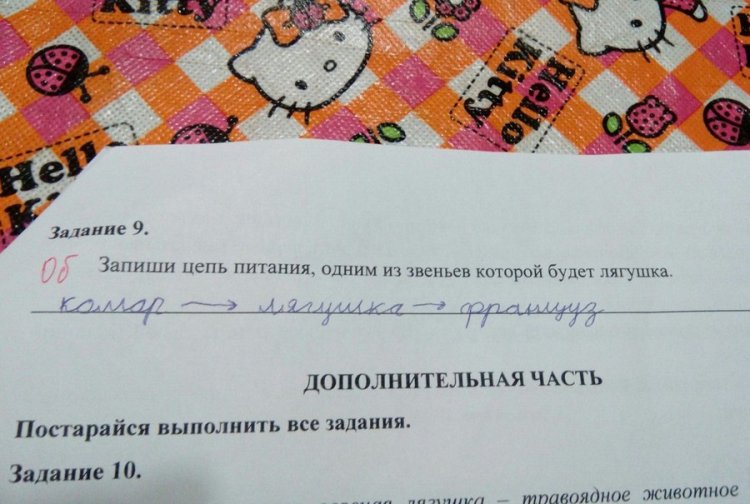 Kitty
Hello
Kitty
Hello
Задание 9.
0б
Запиши цепь питания, одним из звеньев которой будет лягушка.
комар → лягушка → француз
ДОПОЛНИТЕЛЬНАЯ ЧАСТЬ
Постарайся выполнить все задания.
Задание 10.
лягушка – травоядное животное